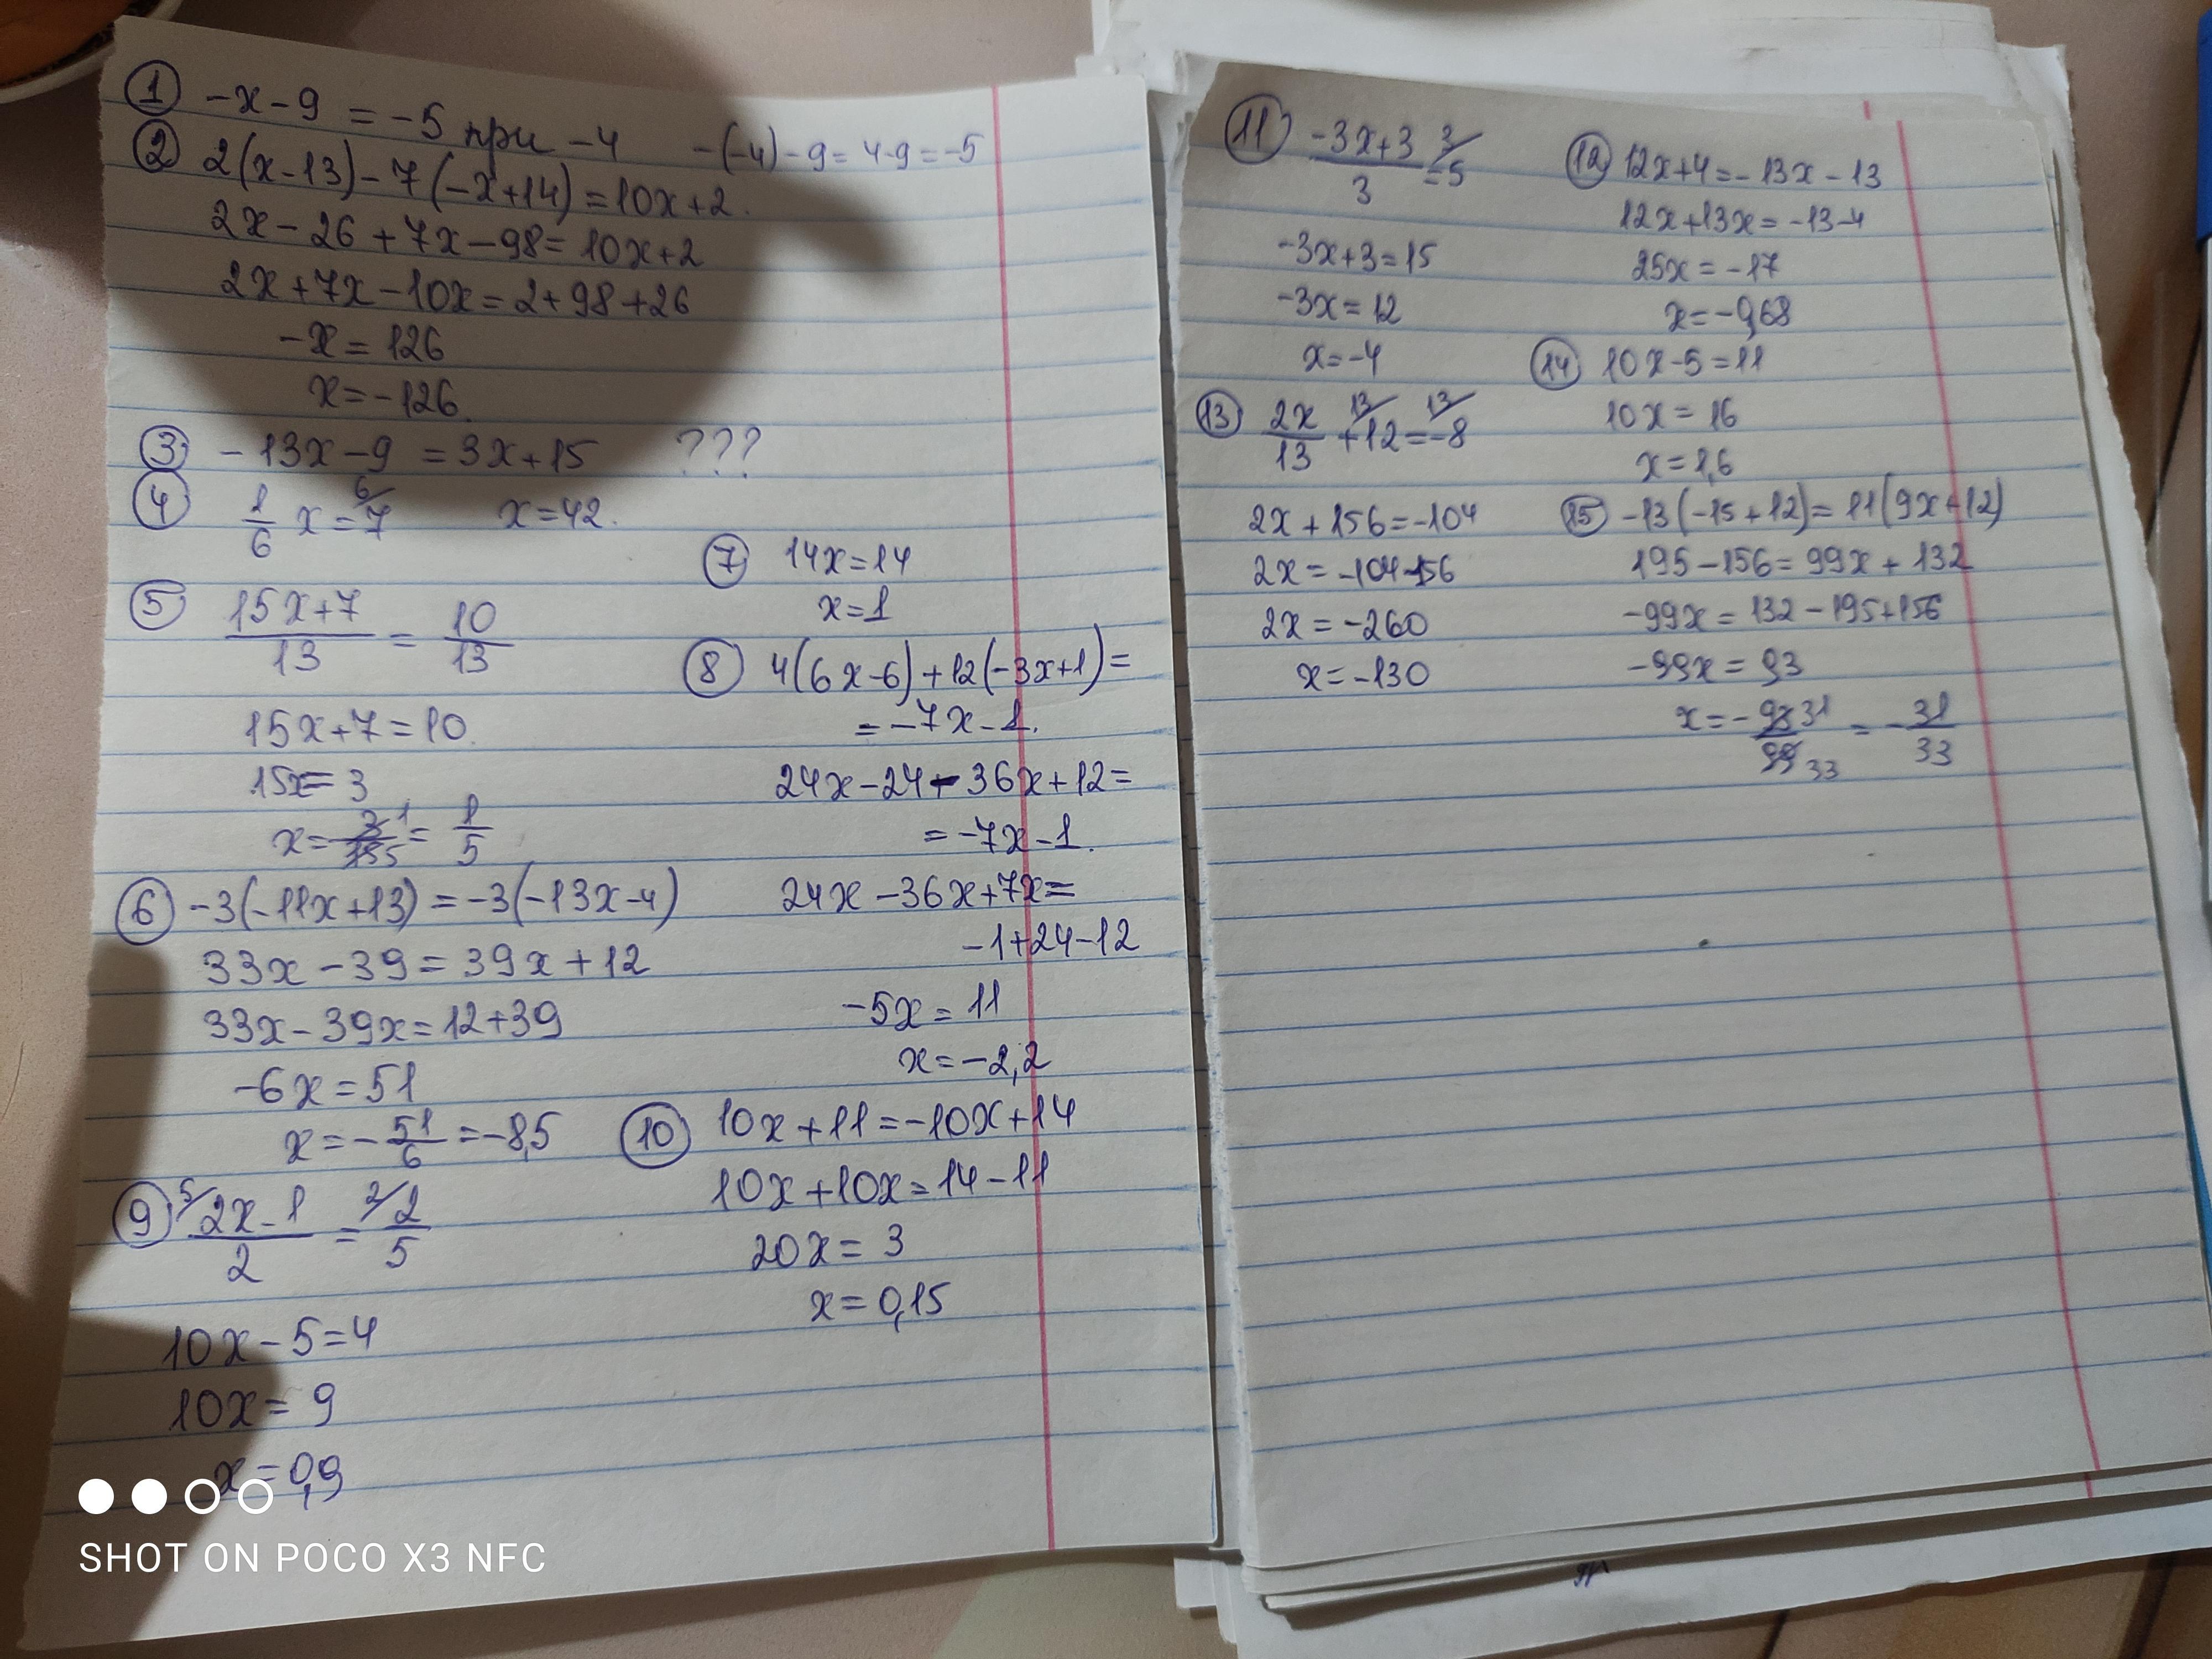 ① -x-9 = -5 при -4 -(-4)-9=4-9=-5
② 2(x-13)-7(-x+14)=10x+2.
2x-26+7x-98=10x+2
2x+7x-10x=2+98+26
-x=126
x=-126.
③ -13x-9 =3x+15 ???
④ 1/6 x=7 6/ x=42.
⑤ (15x+7)/13 = 10/13
15x+7=10.
15x=3
x= 3 1/15 5 = 1/5
⑥ -3(-11x+13)=-3(-13x-4)
33x-39=39x+12
33x-39x=12+39
-6x=51
x=-51/6=-8,5
⑨ 5/ (2x-1)/2 = 2/ 2/5
10x-5=4
10x=9
x=0,9
⑦ 14x=14
x=1
⑧ 4(6x-6)+12(-3x+1)=
=-7x-1.
24x-24-36x+12=
=-7x-1.
24x-36x+7x=
-1+24-12
-5x=11
x=-2,2
⑩ 10x+11=-10x+14
10x+10x=14-11
20x=3
x=0,15
⑪ (-3x+3)/3 =5 3/
-3x+3=15
-3x=12
x=-4
⑬ 2x/13 +12 13/ =-8 13/
2x+156=-104
2x=-104-156
2x=-260
x=-130
⑫ 12x+4=-13x-13
12x+13x=-13-4
25x=-17
x=-0,68
⑭ 10x-5=11
10x=16
x=1,6
⑮ -13(-15+12)=11(9x+12)
195-156=99x+132
-99x=132-195+156
-99x=93
x=-93 31/99 33 = -31/33
SHOT ON POCO X3 NFC